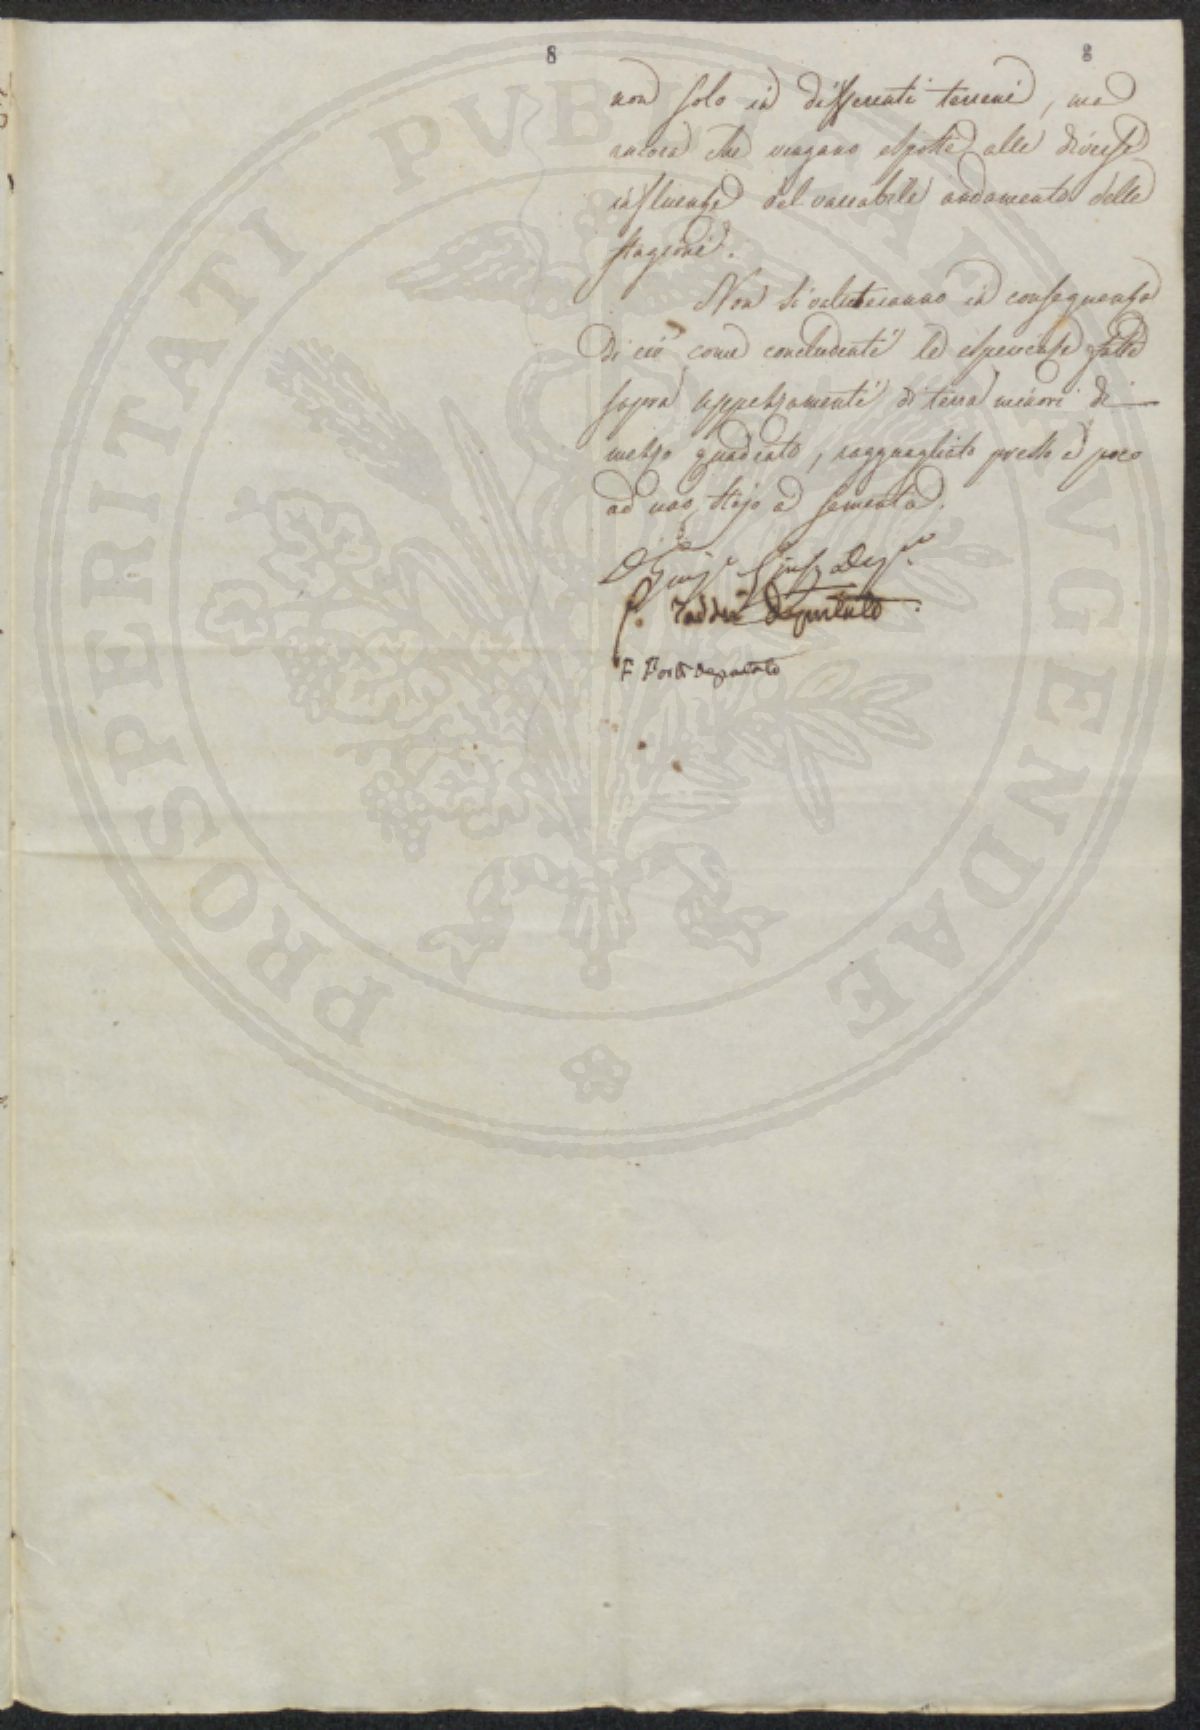 8 8
non solo in differenti terreni, ma
ancora che vengano esposte alle diverse
influenze del variabile andamento delle
stagioni.
Non si valuteranno in conseguenza
di ciò come concludenti le esperienze fatte
sopra appezzamenti di terra minori di
mezzo quadrato, ragguagliato presso a poco
ad uno stajo a sementa.
Taddei Deputato.
F Deputato
PROSPERITATI PUBLICAE AUGENDAE